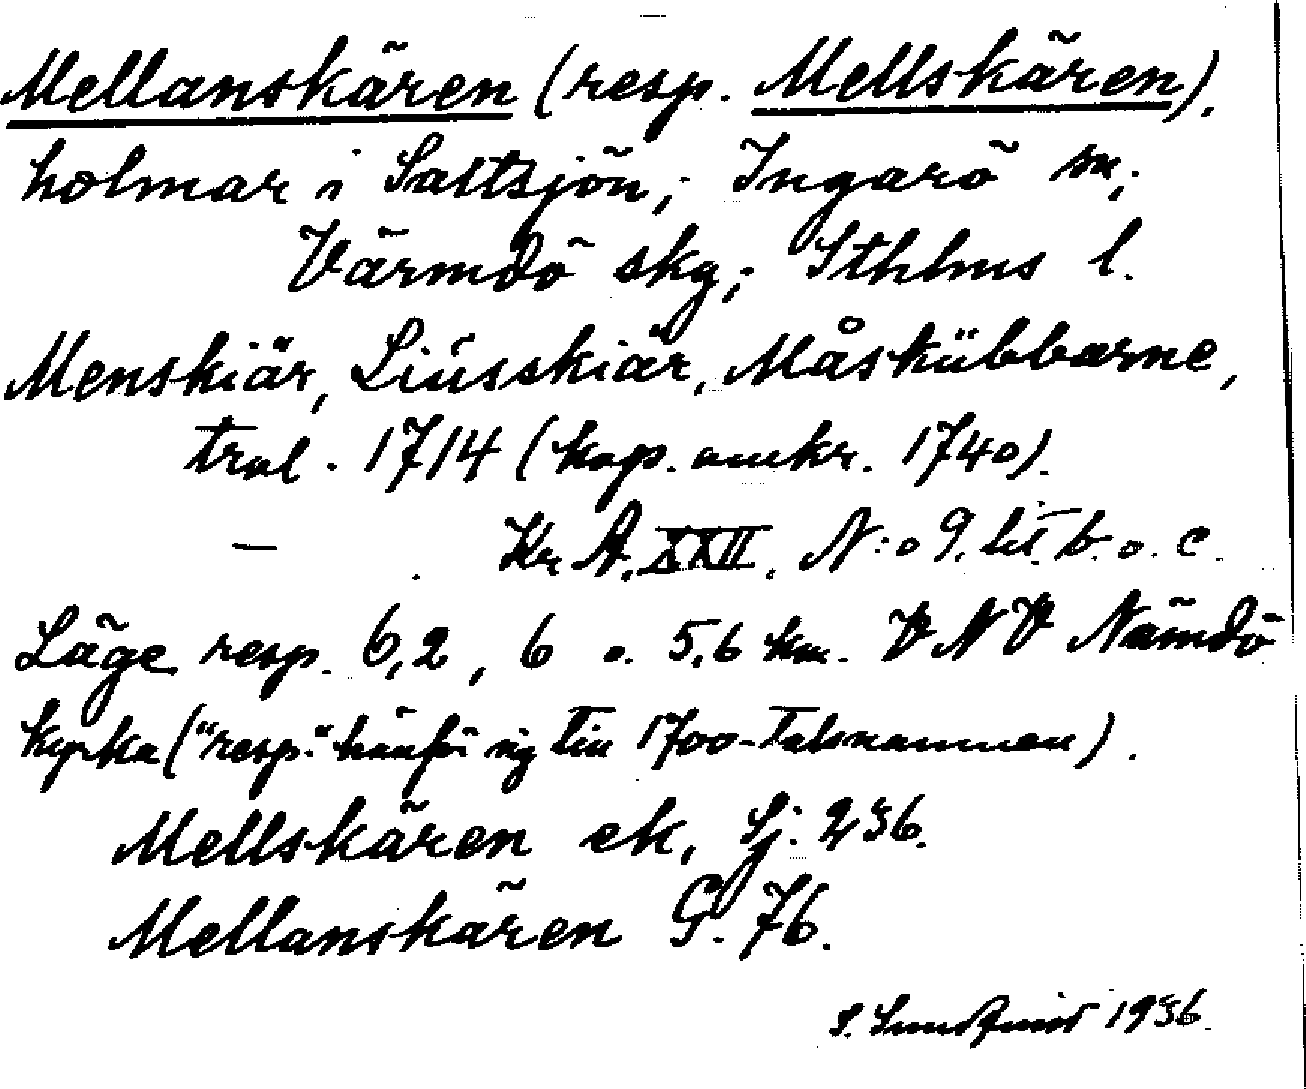 Mellanskären (resp. Mellskären),
holmar i Saltsjön; Ingarö sn;
Värmdö skg; Sthlms l.
Menskiär, Liusskiär, Måskübbarne,
tral. 1714 (kop. omkr. 1740).
— Kr A. XXII. N:o 9. lit b. o. c.
Läge resp. 6,2, 6 o. 5,6 km. VNV Nämdö
kyrka ("resp." hänför sig till 1700-talsnamnen).
Mellskären ek, Sj. 236.
Mellanskären G. 76.
S. 1936.